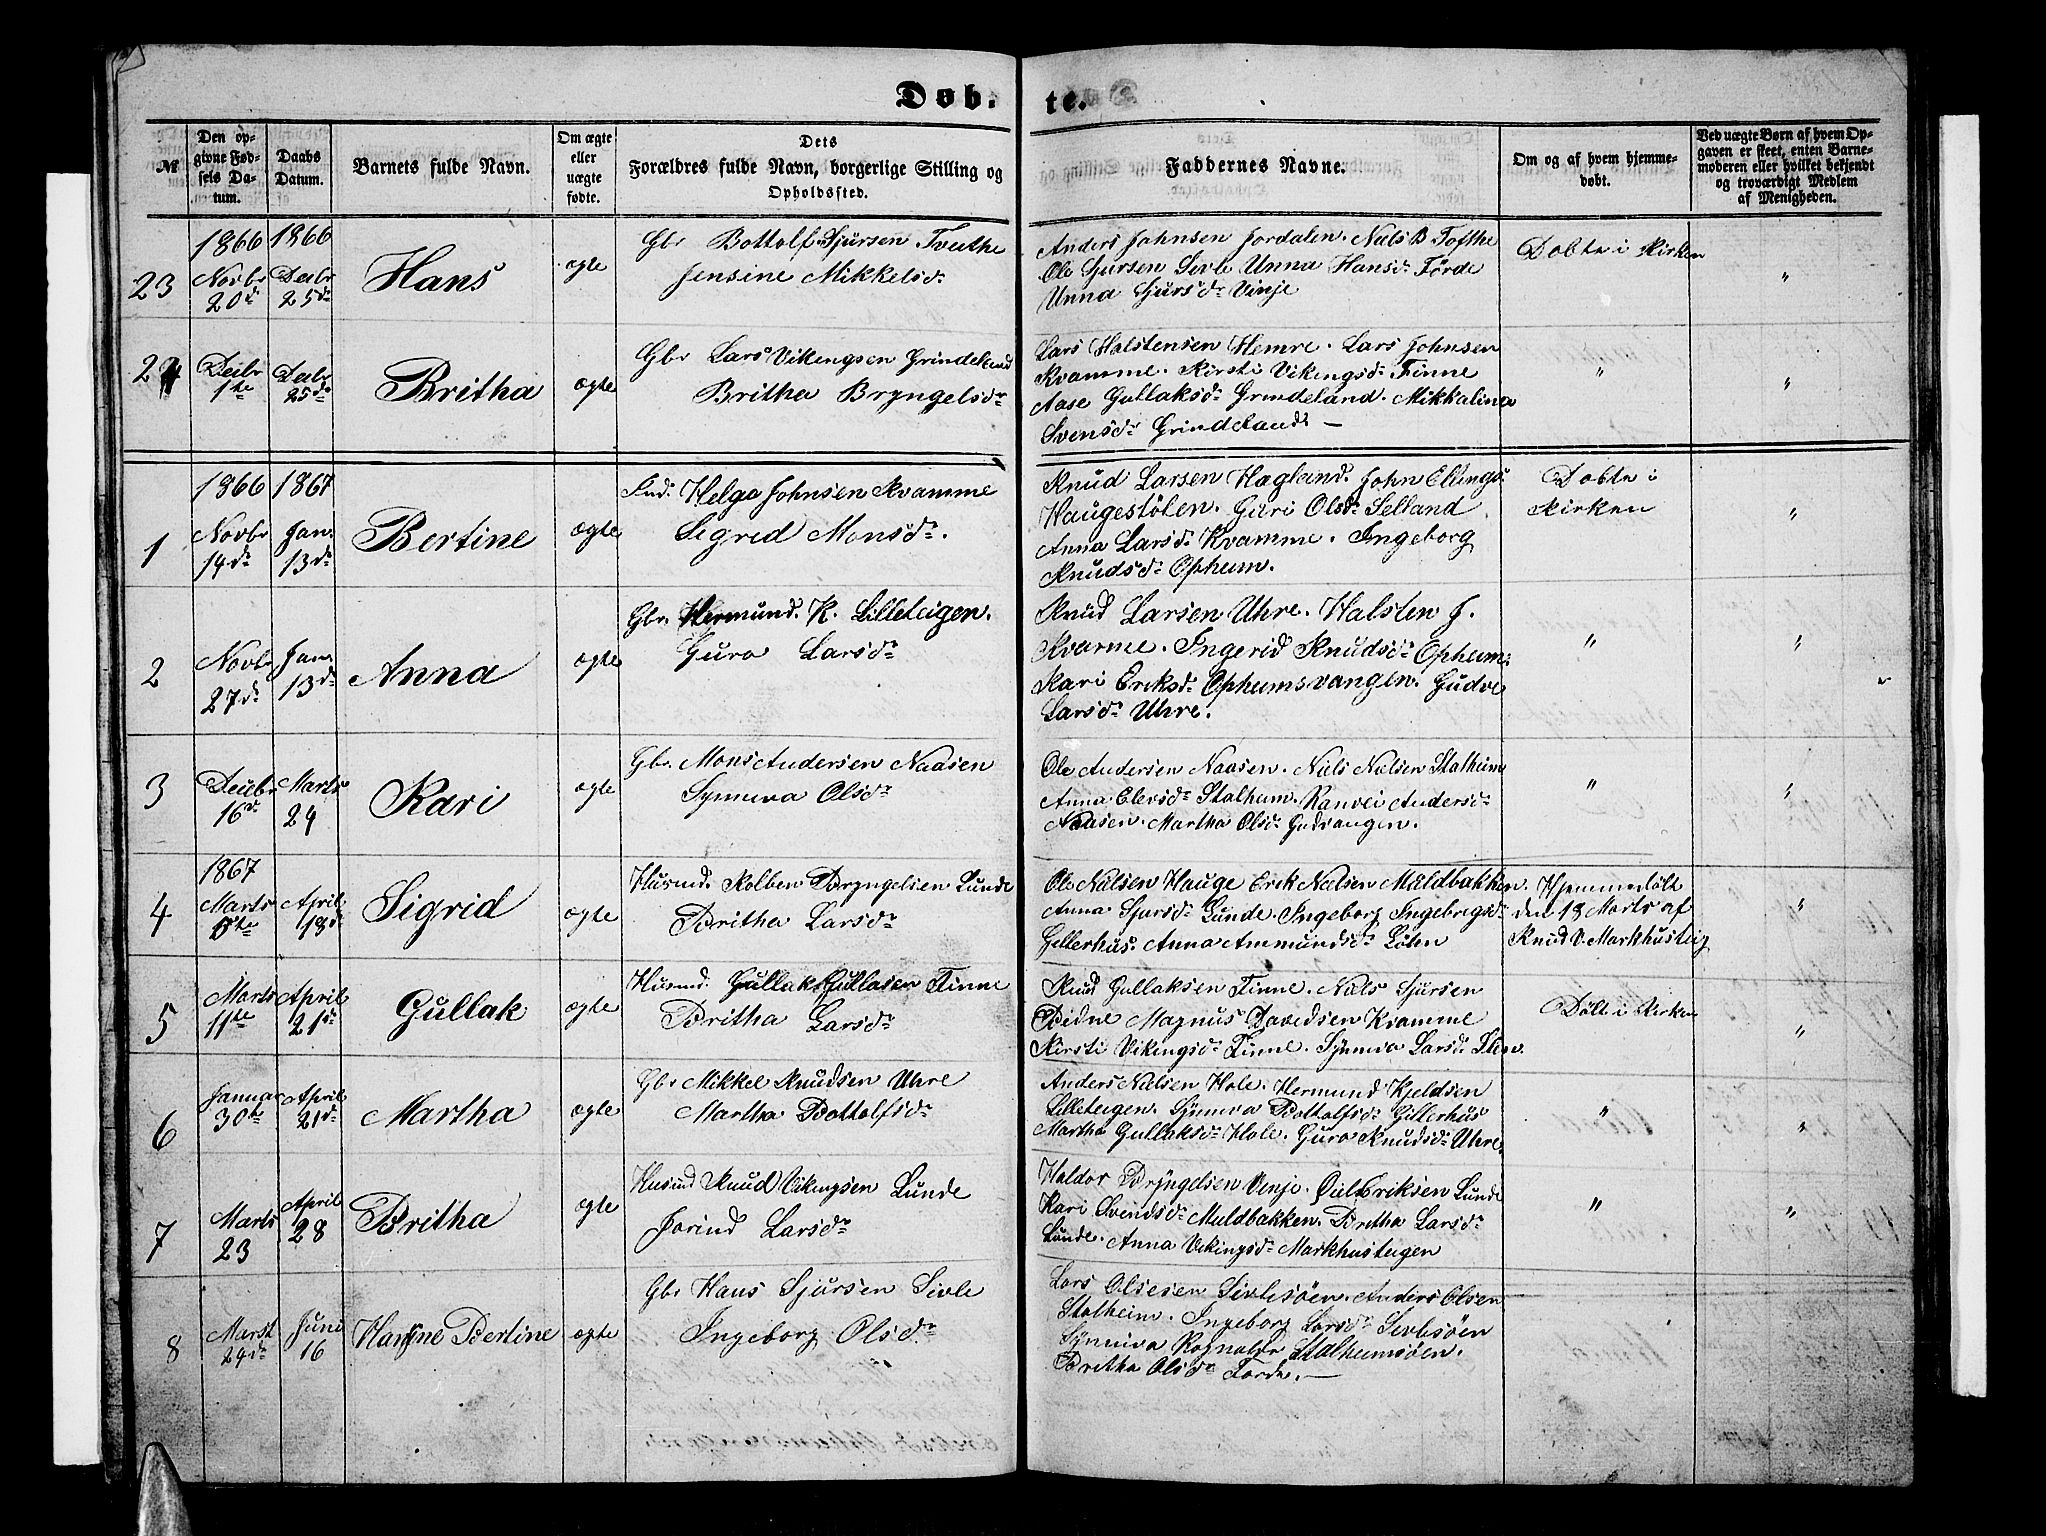 Døb- te.
№
Den op-
givne Fød-
sels Da-
tum.
Daabs
Datum.
Barnets fulde Navn.
Om ægte
eller
uægte
fødte.
Dets
Forældres fulde Navn, borgerlige Stilling og
Opholdssted.
Faddernes Navne.
Om og af hvem hjemme-
døbt.
Ved uægte Børn af hvem Op-
gaven er skeet, enten Barne-
moderen eller hvilket bekjendt
og troværdigt Medlem
af Menigheden.
23
1866
Novbr
20de
1866
Decbr
25de
Hans
ægte
Gbr Bottolf Sjursen Tveithe
Jensine Mikkelsdr
Anders Johnsen Jordalen. Niels B Tofthe
Ole Sjursen Sivle Unna Hansdr Förde
Unna Sjursdr Vinje
Döbte i Kirken
"
24
Decbr
1te
Decbr
25de
Britha
ægte
Gbr Lars Vikengsen Grindeland
Britha Bryngelsdr
Lars Halstensen Hemre. Lars Johnsen
Kvamme. Kirsti Vikingsdr Finne
Aase Gullaksdr Grindeland. Mikkalina
Svensdr Grindeland —
"
"
1
1866
Novbr
14de
1867
Jan.
13de
Bertine
ægte
Ind. Helge Johnsen Kvamme
Sigrid Monsdr.
Knud Larsen Hægland. John Ellings.
Haugestölen. Guri Olsdr Selland
Anna Larsdr Kvamme. Ingeborg
Knudsdr Opheim.
Döbte i
Kirken
"
2
Novbr
27de
Jan.
13de
Anna
ægte
Gbr. Hermund. K. Lilleteigen.
Guro Larsdr
Knud Larsen Uhre. Halsten J.
Kvarme. Ingerid Knudsdr Opheim.
Kari Eriksdr Ophemsvangen. Gudve
Larsdr Uhre.
"
"
3
Decbr
16de
Marts
24
Kari
ægte
Gbr. Mons Andersen Naasen
Synneva Olsdr
Ole Andersen Naasen. Niels Nielsen Stalheim
Anna Elevsdr Stalheim. Ranvei Andersdr
Naasen. Martha Olsdr Gudvangen.
"
"
4
1867
Marts
5te
April
18de
Sigrid
ægte
Husmd. Kolben Bryngelsen Lunde
Britha Larsdr
Ole Nielsen Hauge Erik Nielsen Muldbakken.
Anna Sjursdr Lunde. Ingeborg Ingebrigsdr
Gellerhus. Anna Ammundsdr Löhn
Hjemmedöbt
den 18 Marts af
Knud V. Markhusteig
"
5
Marts
11te
April
21de
Gullak
ægte
Husmd. Gullak Gullaksen Finne
Britha Larsdr
Knud Gullaksen Finne. Niels Sjursen
Bidne Magnus Davedsen Kvamme
Kirsti Vikingsdr Finne. Synneva Larsdr
Döbt i Kirken
"
6
Januar
30te
April
21de
Martha
ægte
Gbr Mikkel Knudsen Uhre
Martha Bottolfsdr
Anders Nielsen Hole. Hermund Kjeldsen
Lilleteigen. Synneva Bottolfsdr Gillerhus
Martha Gullaksdr Hole. Guro Knudsdr Uhre.
"
"
7
Marts
23
April
28
Britha
ægte
Husmd Knud Vikingsen Lunde
Jorind Larsdr
Haldor Bryngelsen Vinje. Eriksen Lunde
Kari Svendsdr Muldbakken. Britha Larsdr
Lunde. Anna Vikingsdr Markhusteigen
"
"
8
Marst
24de
Juni
16
Hansine Bertine
ægte
Gbr Hans Sjursen Sivle
Ingeborg Olsdr
Lars Olsesen Sivlesöen. Anders Olsen
Stalheim. Ingeborg Larsdr Sivlesöen
Synneva Stalheimsöen.
Britha Olsdr Förde. —